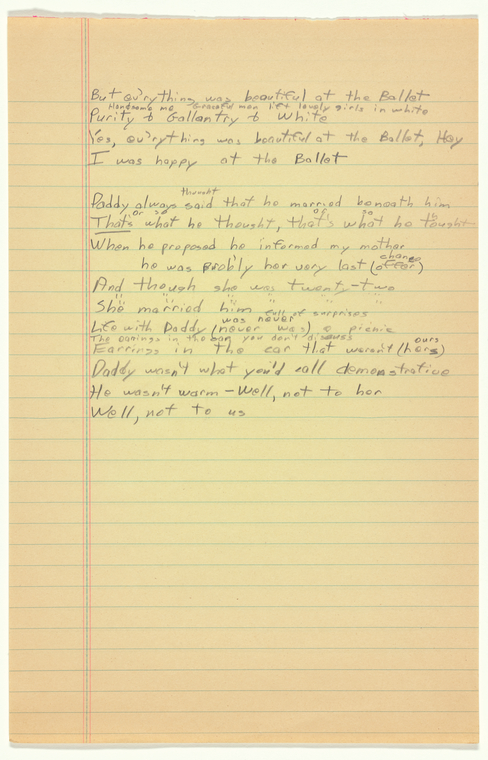 But ev'rything was beautiful at the Ballet
Handsome me Graceful men lift lovely girls in white
Purity & Gallantry & White
Yes, ev'rything was beautiful at the Ballet, Hey
I was happy at the Ballet
thought
Daddy always said that he married beneath him
or so of so
That's what he thought, that's what he thought
When he proposed he informed my mother
chance
he was prob'ly her very last (offer)
And though she was twenty-two
She married him
was never full of surprises
Life with Daddy (never was) a picnic
The earrings in the car you don't discuss ours
Earrings in the car that weren't (hers)
Daddy wasn't what you'd call demonstrative
He wasn't warm - Well, not to her
Well, not to us